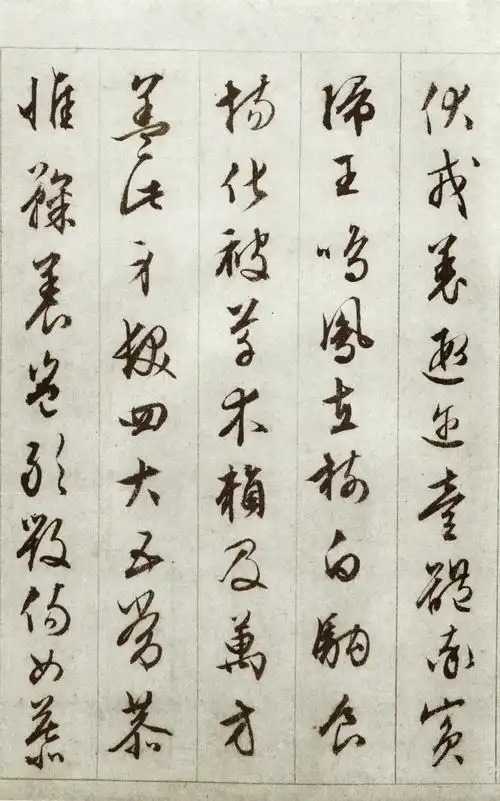 伏戎羌遐迩壹體率賓
歸王鳴鳳在樹白駒食
場化被草木賴及萬方
蓋此身髮四大五常恭
惟鞠養豈敢毀傷女慕